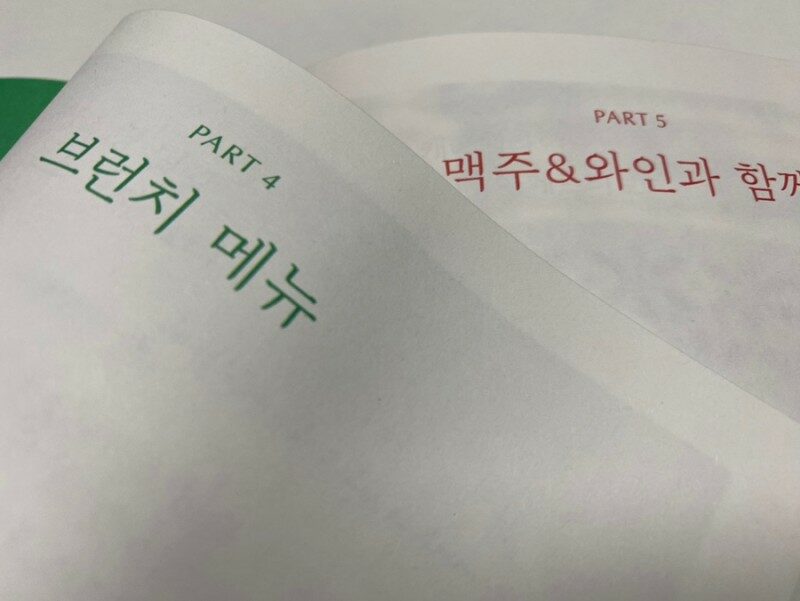 PART 4
브런치 메뉴
PART 5
맥주&와인과 함께